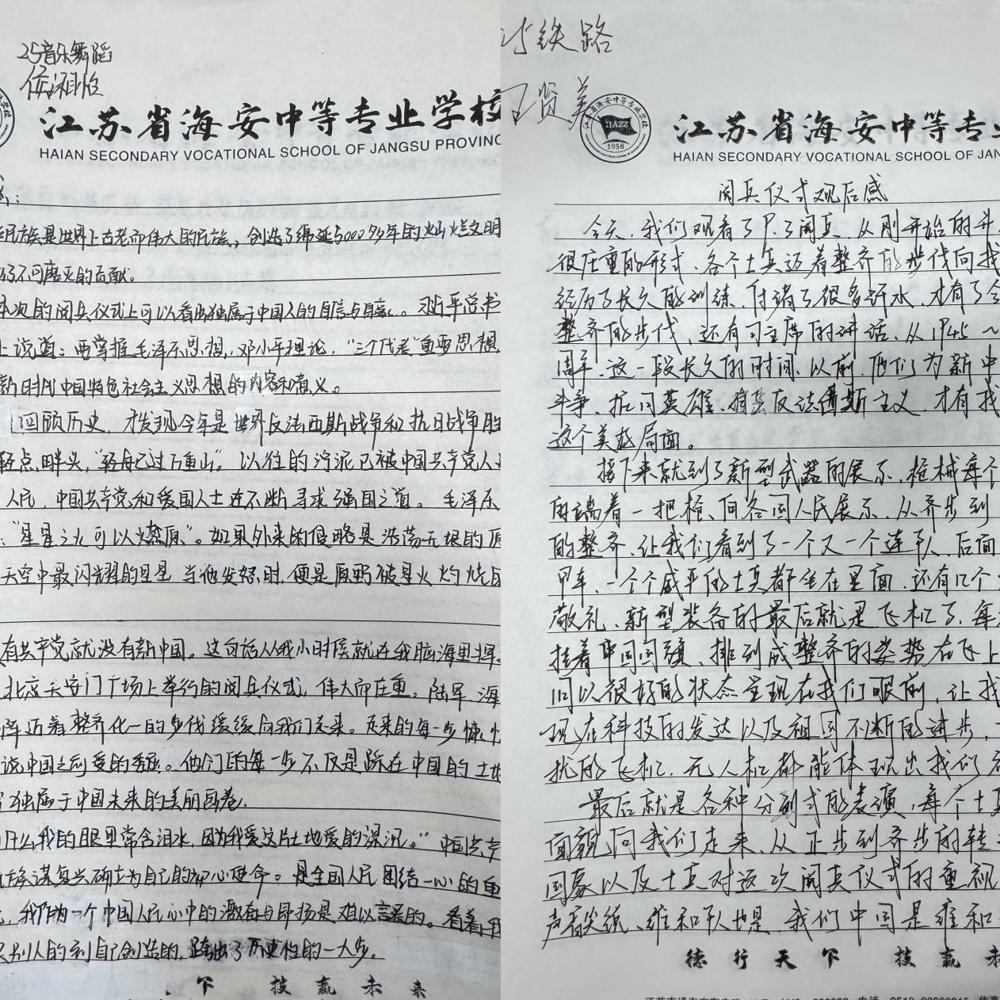 25音乐舞蹈
江苏省海安中等专业学校
HAIAN SECONDARY VOCATIONAL SCHOOL OF JANGSU PROVINC
民族是世界上古老而伟大的民族,创造了绵延5000多年的灿烂文明
了不可磨灭的贡献。
本次的阅兵仪式上可以看出独属于中国人的自信与自豪。习近平总书
上说道:要掌握毛泽东思想,邓小平理论,“三个代表”重要思想
新时代中国特色社会主义思想的内容和意义。
回顾历史,才发现今年是世界反法西斯战争和抗日战争胜
“轻舟已过万重山”。以往的污泥已被中国共产党人
人民,中国共产党和爱国人士在不断寻求强国之道。毛泽东
:“星星之火可以燎原”。如果外来的侵略是浩荡无垠的原
天空中最闪耀的星星,当他发怒时,便是原野被星火灼烧
有共产党就没有新中国。这句话从我小时候就在我脑海里
北京天安门广场上举行的阅兵仪式,伟大而庄重,陆军、海
军迈着整齐化一的步伐缓缓向我们走来。走来的每一步
说中国之可爱的 。他们的每一步不仅是踩在中国的土地
独属于中国未来的美丽画卷.
什么我的眼里常含泪水,因为我爱这片土地爱的深沉。”中国共产
族谋复兴确立为自己的初心使命。是全国人民团结一心的
我作为一个中国人民心中的激奋与昂扬是难以言表的。看着
别人的到自己创造的,踏出了历史性的一大步。
下 技赢未来
25铁路
王贤美
HAZZ
1958
江苏省海安中等专
HAIAN SECONDARY VOCATIONAL SCHOOL OF JAN
阅兵仪式观后感
今天,我们观看了9.3阅兵,从刚开始的升
很庄重的形式,各个士兵迈着整齐的步伐向我
经历了长久的训练,付诸了很多汗水,才有了
整齐的步伐,还有习主席的讲话,从1945~
周年,这一段长久的时间,以前,他们为新中
斗争,抗日英雄, 反法西斯主义,才有我
这个美好局面。
接下来就到了新型武器的展示,枪械每个
的端着一把枪,向各国人民展示,从齐步到
的整齐,让我们看到了一个又一个连队,后面
甲车,一个个威严的士兵都坐在里面,还有几个
敬礼,新型装备的最后就是飞机了,每
挂着中国国旗,排列成整齐的姿势在飞上
们以很好的状态呈现在我们眼前,让我
现在科技的发达以及祖国不断的进步,
扰的飞机,无人机都能体现出我们
最后就是各种分列式的表演,每个士
面貌向我们走来,从正步到齐步的转
国家以及士兵对这次阅兵仪式的重视
维和队也是,我们中国是维和
德行天下 技赢未